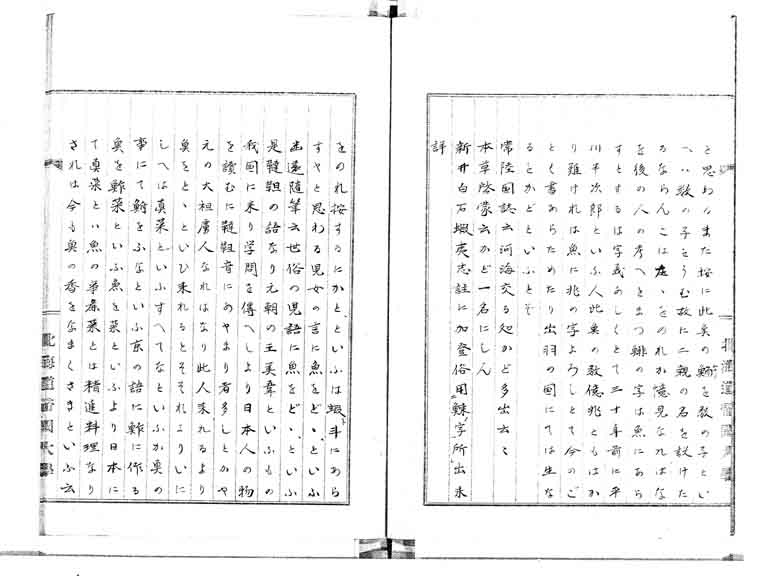 と思わるまた按に此奥の鯑を数の子とい
へハ数の子をうむ故に二親の名を設けた
るならんこは左ゝをのれか憶見なれはな
を後の人の考へとまつ鯡の字は魚にあら
すとするは字義あしくとて三十年前に平
川平次郎といふ人此奥の数億兆ともはか
り難けれは魚に兆の字よろしとて今のこ
とく書あらためたり出羽の国にては生な
るとかどといふとそ
常陸国誌云河海交る処かど多出云々
本草啓蒙云かど一名にしん
新井白石蝦夷志註に加登俗用鰊字所出未
詳
をのれ按するにかと、といふは蝦斗にあら
すやと思わる児女の言に魚をどゝといふ
幽遠随筆云世俗の児語に魚をどゝといふ
是韃靼の語なり元朝の王義韋といふもの
我国に来り学問を傳へしより日本人の物
を讀むに韃靼音にあやまり者多しとかや
元の大祖虜人なれはなり此人来れるより
奥をとゝといひ来れるとそそれこりいに
しへは真菜といふすへてなといふか奥の
事にて鮒をふなといふ京の語に鮓に作る
奥を鮓菜といふ魚を菜といふより日本に
て真菜とハ魚の
菜とは精進料理なり
されは今も奥の香をなまくさきといふ云
北海道帝国大學